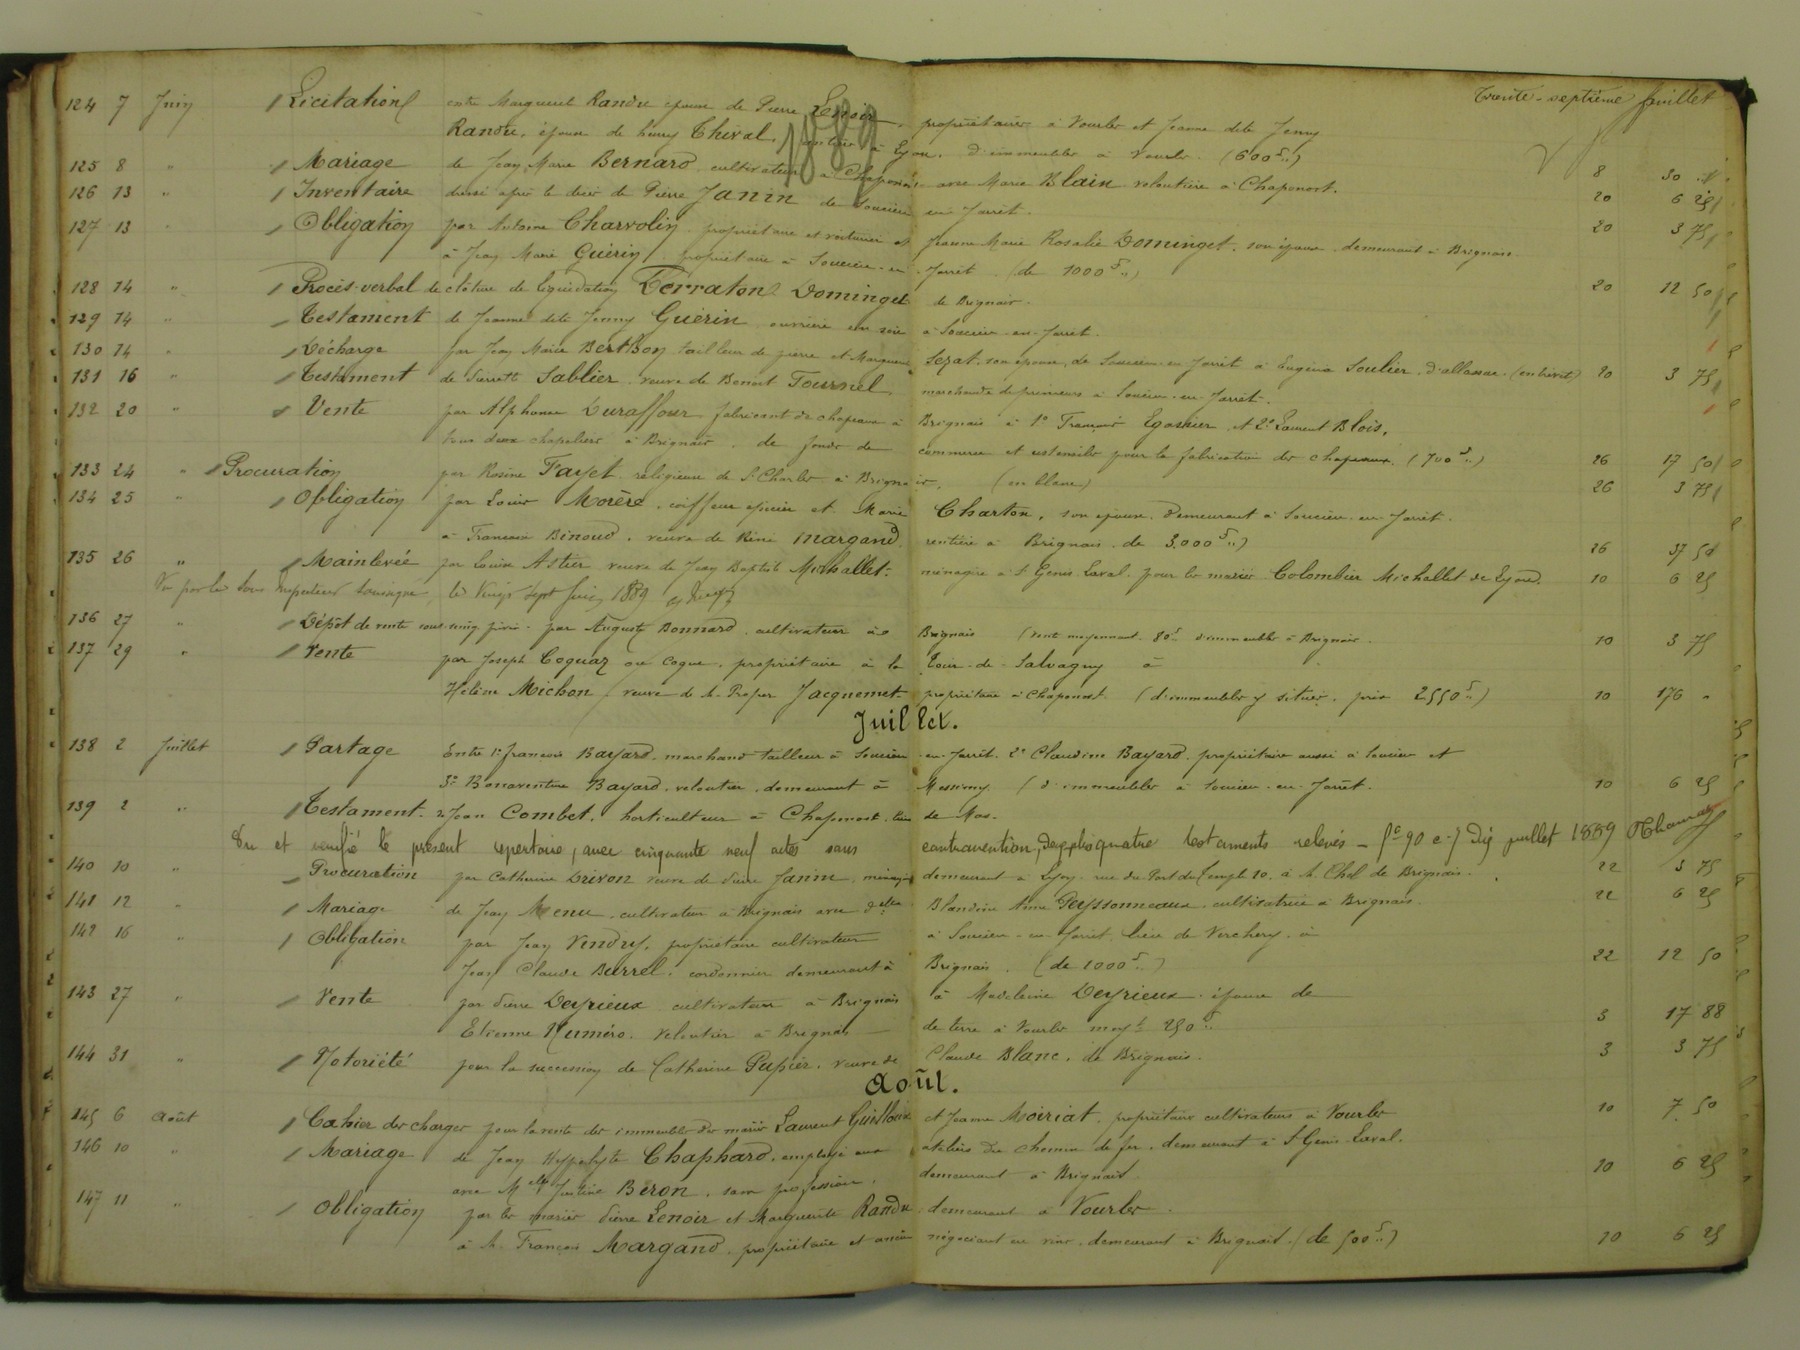 Trente-septième feuillet
1889
124 7 Juin Licitation entre Marguerite Randu épouse de Pierre Lenoir propriétaires à Vourles et Jeanne dite Jenny
Randu, épouse de henry Chival, rentier à Lyon, d'immeubles à Vourles. (600 f.) 8 30
125 8 " Mariage de Jean Marie Bernard, cultivateur à Chaponost avec Marie Blain veloutière à Chaponost. 20 6 25
126 13 " Inventaire dressé après le décès de Pierre Janin de Soucieu en Jarrêt. 20 3 75
127 13 " Obligation par Antoine Charvolin propriétaire et voiturier et Jeanne Marie Rosalie Dominget, son épouse demeurant à Brignais
à Jean Marie Guérin propriétaire à Soucieu-en-Jarrêt. (de 1000 f.) 20 12 50
128 14 " Procès-verbal de clôture de liquidation Terraton Dominget de Brignais.
129 14 " Testament de Jeanne dite Jenny Guérin ouvrière en soie à Soucieu-en-Jarret.
130 14 " Décharge par Jean Marie Berthon tailleur de pierre et Marguerite Sezat, son épouse, de Soucieu-en-Jarrêt à Eugénie Soulier d'allassac. (en brevet) 20 3 75
131 16 " Testament de Pierrette Sablier veuve de Benoit Tournel marchande de primeurs à Soucieu-en-Jarret.
132 20 " Vente par Alphonse Duraffour fabricant de chapeaux à Brignais à 1º François et 2º Laurent Blois,
tous deux chapeliers à Brignais. de fonds de commerce et ustensiles pour la fabrication des chapeaux. (700 f.) 26 17 50
133 24 " Procuration par Rosine Fayet religieuse de St Charles à Brignais. (en blanc) 26 3 75
134 25 " Obligation par Louis Morère, coiffeur épicier et Marie Charton, son épouse, demeurant à Soucieu-en-Jarret.
à Françoise Binoud, veuve de Rémi Margand rentière à Brignais. de 3.000 f.) 26 37 50
135 26 " Mainlevée par Louise Astier veuve de Jean Baptiste Michallet ménagère à St Genis Laval. pour les mariés Colombier Michallet de Lyon. 10 6 25
Vu par le Sous Inspecteur soussigné, le Vingt sept Juin 1889
136 27 " Dépôt de vente sous-seing privé par Auguste Bonnard, cultivateur à Brignais (vente moyennant 80 f. d'immeubles à Brignais. 10 3 75
137 29 " Vente par Joseph Coquaz ou Coque, propriétaire à la Tour-de-Salvagny à
Hélène Michon veuve de Mr Prosper Jacquemet propriétaire à Chaponost (d'immeubles y situés. prix 2550 f.) 10 176 "
Juillet.
138 2 Juillet Partage Entre 1º françois Bayard, marchand tailleur à Soucieu-en-Jarrêt. 2º Claudine Bayard, propriétaire aussi à Soucieu et
3º Bonaventure Bayard, veloutier, demeurant à Messimy. (d'immeubles à Soucieu-en-Jarrêt. 10 6 25
139 2 " Testament de Jean Combet, horticulteur à Chaponost, lieu de Mas.
Vu et vérifié le présent répertoire, avec cinquante neuf actes sans contravention, de plus quatre testaments relevés - Dix juillet 1889
140 10 " Procuration par Catherine Drivon veuve de Pierre Janin, ménagère demeurant à Lyon, rue du Port du Temple 10. à Mr Chol de Brignais. 22 3 75
141 12 " Mariage de Jean Menu, cultivateur à Brignais avec delle Blandine Anne Peyssonneaux, cultivatrice à Brignais. 22 6 25
142 16 " Obligation par Jean Vindry, propriétaire cultivateur à Soucieu-en-Jarrêt, lieu de Verchery, à
Jean Claude Burrel, cordonnier demeurant à Brignais. (de 1000 f.) 22 12 50
143 27 " Vente par Pierre Deyrieux cultivateur à Brignais à Madeleine Deyrieux épouse de
Etienne Numéro, veloutier à Brignais de terre à Vourles moyt 250 f. 3 17 88
144 31 " Notoriété pour la succession de Catherine Pupier, veuve de Claude Blanc, de Brignais. 3 3 75
Août.
145 6 Août Cahier des charges pour la vente des immeubles des mariés Laurent Guilloux et Jeanne Moiriat, propriétaires cultivateurs à Vourles 10 7 50
146 10 " Mariage de Jean Hyppolyte Chaphard, employé aux ateliers du chemin de fer, demeurant à St Genis-Laval.
avec Melle Justine Béron, sans profession, demeurant à Brignais. 10 6 25
147 11 " Obligation par les mariés Pierre Lenoir et Marguerite Randu demeurant à Vourles.
à Mr François Margand, propriétaire et ancien négociant en vins, demeurant à Brignais. (de 500 f.) 10 6 25